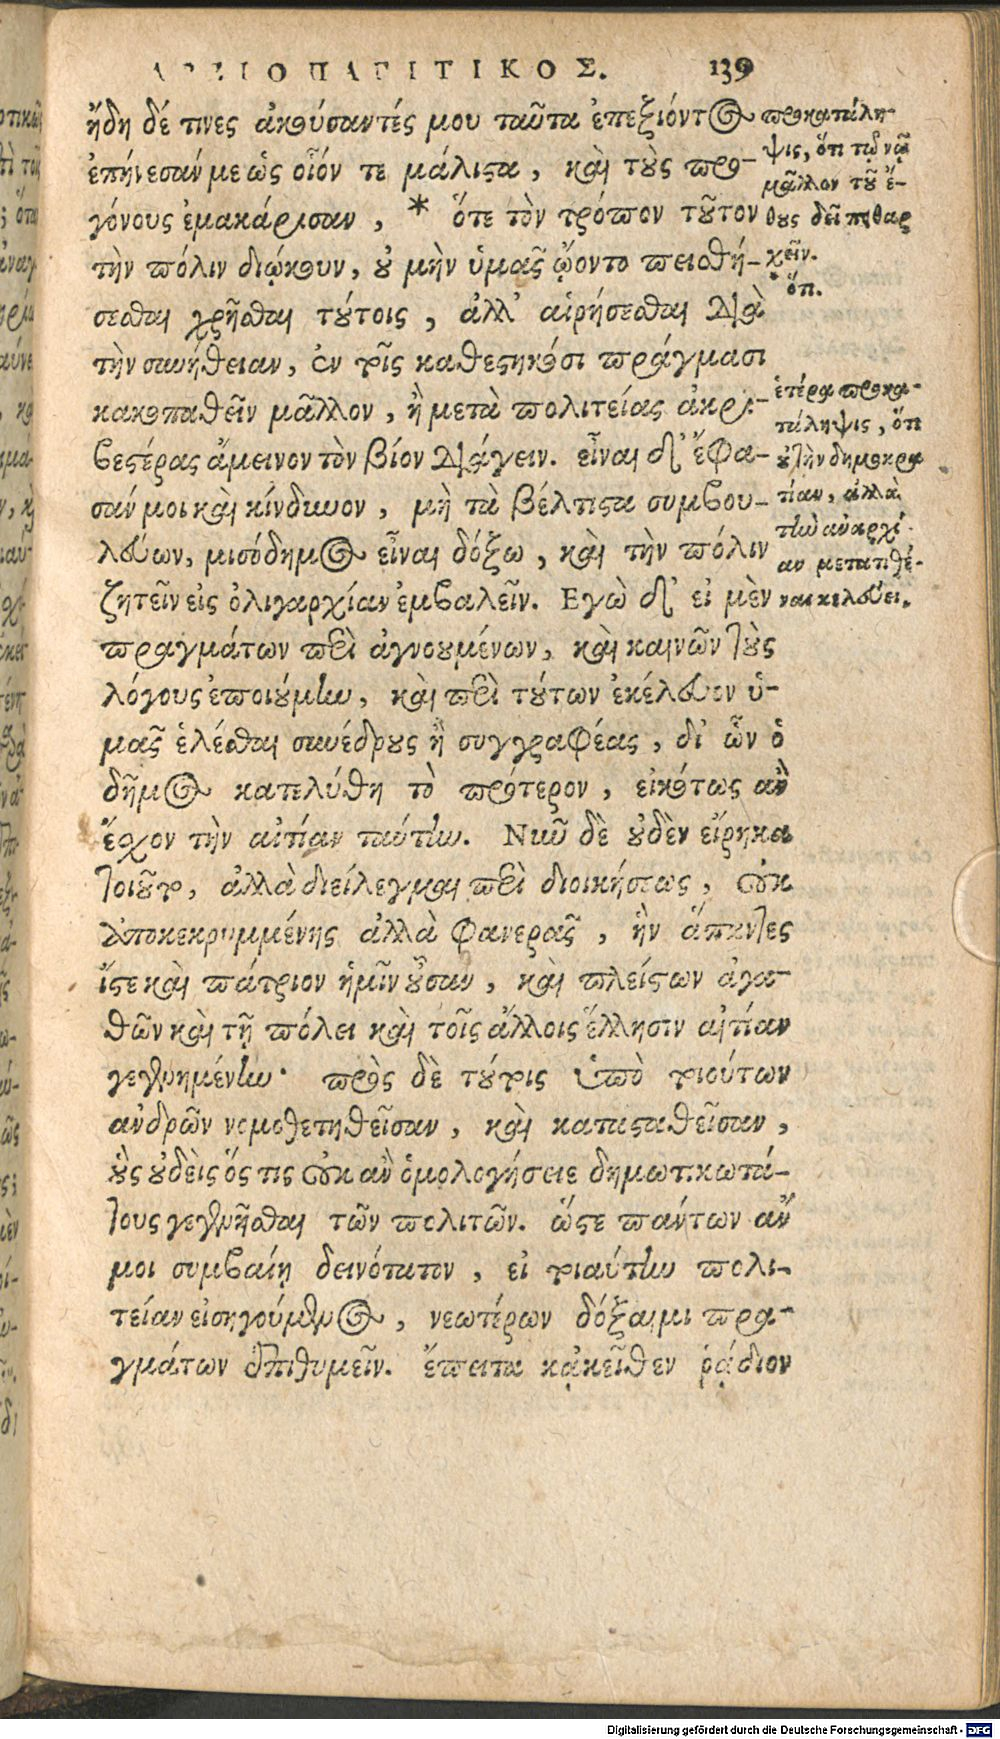 ΑΡΕΙΟΠΑΓΙΤΙΚΟΣ. 139
ἤδη δέ τινες ἀκούσαντές μου ταῦτα ἐπεξιόντος
ἐπῄνεσάν με ὡς οἷόν τε μάλιστα, καὶ τοὺς προ-
γόνους ἐμακάρισαν, * ὅτε τὸν τρόπον τοῦτον
τὴν πόλιν διῴκουν, οὐ μὴν ὑμᾶς ᾤοντο πεισθή-
σεσθαι χρῆσθαι τούτοις, ἀλλ' αἱρήσεσθαι διὰ
τὴν συνήθειαν, ἐν τοῖς καθεστηκόσι πράγμασι
κακοπαθεῖν μᾶλλον, ἢ μετὰ πολιτείας ἀκρι-
βεστέρας ἄμεινον τὸν βίον διάγειν. εἶναι δ' ἔφα-
σάν μοι καὶ κίνδυνον, μὴ τὰ βέλτιστα συμβου-
λεύων, μισόδημος εἶναι δόξω, καὶ τὴν πόλιν
ζητεῖν εἰς ὀλιγαρχίαν ἐμβαλεῖν. Εγὼ δ' εἰ μὲν
πραγμάτων περὶ ἀγνοουμένων, καὶ καινῶν τοὺς
λόγους ἐποιούμην, καὶ περὶ τούτων ἐκέλευον ὑ-
μᾶς ἑλέσθαι συνέδρους ἢ συγγραφέας, δι' ὧν ὁ
δῆμος κατελύθη τὸ πρότερον, εἰκότως ἂν
ἔσχον τὴν αἰτίαν ταύτην. Νῦν δὲ οὐδὲν εἴρηκα
τοιοῦτον, ἀλλὰ διείλεγμαι περὶ διοικήσεως, οὐκ
ἀποκεκρυμμένης ἀλλὰ φανερᾶς, ἣν ἅπαντες
ἴστε καὶ πάτριον ἡμῖν οὖσαν, καὶ πλείστων ἀγα-
θῶν καὶ τῇ πόλει καὶ τοῖς ἄλλοις ἕλλησιν αἰτίαν
γεγενημένην· πρὸς δὲ τούτοις ὑπὸ τοιούτων
ἀνδρῶν νομοθετηθεῖσαν, καὶ κατασταθεῖσαν,
οὓς οὐδεὶς ὅς τις οὐκ ἂν ὁμολογήσειε δημοτικωτά-
τους γεγενῆσθαι τῶν πολιτῶν. ὥστε πάντων ἄν
μοι συμβαίη δεινότατον, εἰ τοιαύτην πολι-
τείαν εἰσηγούμενος, νεωτέρων δόξαιμι πρα-
γμάτων ἐπιθυμεῖν. ἔπειτα κἀκεῖθεν ῥᾴδιον
προκατάλη-
ψις, ὅτι τῷ νῷ
μᾶλλον τοῦ ἔ-
θους δεῖ πειθαρ
χεῖν.
* ὅτι.
ἑτέρα προκα-
τάληψις, ὅτι
οὐ τὴν δημοκρα
τίαν, ἀλλὰ
τὴν ἀναρχί-
αν μετατιθέ-
ναι κελεύει.
Digitalisierung gefördert durch die Deutsche Forschungsgemeinschaft - DFG